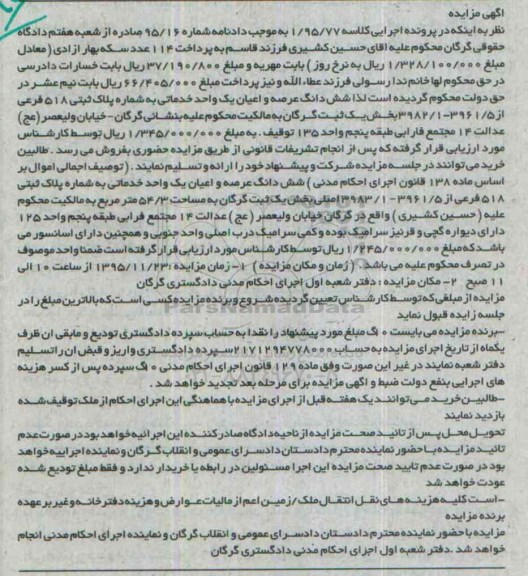 آگهی مزایده
نظر به اینکه در پرونده اجرایی کلاسه ۱/۹۵/۷۷ به موجب دادنامه شماره ۹۵/۱۶ صادره از شعبه هفتم دادگاه
حقوقی گرگان محکوم علیه آقای حسین کشیری فرزند قاسم به پرداخت ۱۱۴ عدد سکه بهار ازادی ( معادل
مبلغ ۱/۳۲۸/۱۰۰/۰۰۰ ریال به نرخ روز ) بابت مهریه و مبلغ ۳۷/۱۹۰/۸۰۰ ریال بابت خسارات دادرسی
در حق محکوم لها خانم ندا رسولی فرزند عطاءالله و نیز پرداخت مبلغ ۶۶/۴۰۵/۰۰۰ ریال بابت نیم عشر در
حق دولت محکوم گردیده است لذا شش دانگ عرصه و اعیان یک واحد خدماتی به شماره پلاک ثبتی ۵۱۸ فرعی
از ۳۹۶۱/۵-۳۹۸۲/۱ بخش یک ثبت گرگان به مالکیت محکوم علیه بنشانی گرگان - خیابان ولیعصر (عج)
عدالت ۱۴ مجتمع فارابی طبقه پنجم واحد ۱۳۵ توقیف . به مبلغ ۱/۳۴۵/۰۰۰/۰۰۰ ریال توسط کارشناس
مورد ارزیابی قرار گرفته که پس از انجام تشریفات قانونی از طریق مزایده حضوری بفروش می رسد . طالبین
خرید می توانند در جلسه مزایده شرکت و پیشنهاد خود را ارائه و تسلیم نمایند . ( توصیف اجمالی اموال بر
اساس ماده ۱۳۸ قانون اجرای احکام مدنی ) شش دانگ عرصه و اعیان یک واحد خدماتی به شماره پلاک ثبتی
۵۱۸ فرعی از ۳۹۶۱/۵-۳۹۸۳/۱ اصلی بخش یک ثبت گرگان به مساحت ۵۴/۳ متر مربع به مالکیت محکوم
علیه ( حسین کشیری ) واقع در گرگان خیابان ولیعصر ( عج ) عدالت ۱۴ مجتمع فرابی طبقه پنجم واحد ۱۲۵
دارای دیواره گچی و قرنیز سرامیک بوده و کمی سرامیک درب اصلی واحد جنوبی و همچنین دارای اسانسور می
باشد که مبلغ ۱/۲۴۵/۰۰۰/۰۰۰ ریال توسط کارشناس مورد ارزیابی قرار گرفته است ضمنا واحد موصوف
در تصرف محکوم علیه می باشد . ( زمان و مکان مزایده ) ۱- زمان مزایده : ۱۳۹۵/۱۱/۲۳ از ساعت ۱۰ الی
۱۱ صبح ۲- مکان مزایده : دفتر شعبه اول اجرای احکام مدنی دادگستری گرگان
مزایده از مبلغی که توسط کارشناس تعیین گردیده شروع و برنده مزایده کسی است که بالاترین مبلغ را در
جلسه زایده قبول نماید
ParsNamadData
-برنده مزایده می بایست مبلغ مورد پیشنهاد را نقدا به حساب سپرده دادگستری تودیع و مابقی ان ظرف
یکماه از تاریخ اجرای مزایده به حساب ۲۱۷۱۲۹۴۷۷۸۰۰۰ سپرده دادگستری واریز و قبض ان را تسلیم
دفتر شعبه نمایند در غیر این صورت وفق ماده ۱۲۹ قانون اجرای احکام مدنی سپرده پس از کسر هزینه
های اجرایی بنفع دولت ضبط و اگهی مزایده برای مرحله بعد تجدید خواهد شد .
-طالبین خرید می توانند یک هفته قبل از اجرای مزایده با هماهنگی این اجرای احکام از ملک توقیف شده
بازدید نمایند
تحویل محل پس از تائید صحت مزایده از ناحیه دادگاه صادر کننده این اجرائیه خواهد بود در صورت عدم
تائید مزایده با حضور نماینده محترم دادستان دادسرای عمومی و انقلاب گرگان و نماینده اجراییه خواهد
بود در صورت عدم تایید صحت مزایده این اجرا مسئولین در رابطه با خریدار ندارد و فقط مبلغ تودیع شده
عودت خواهد شد
-است کلیه هزینه های نقل انتقال ملک / زمین اعم از مالیات عوارض و هزینه دفترخانه وغیر بر عهده
برنده مزایده
مزایده با حضور نماینده محترم دادستان دادسرای عمومی و انقلاب گرگان و نماینده اجرای احکام مدنی انجام
خواهد شد .دفتر شعبه اول اجرای احکام مدنی دادگستری گرگان